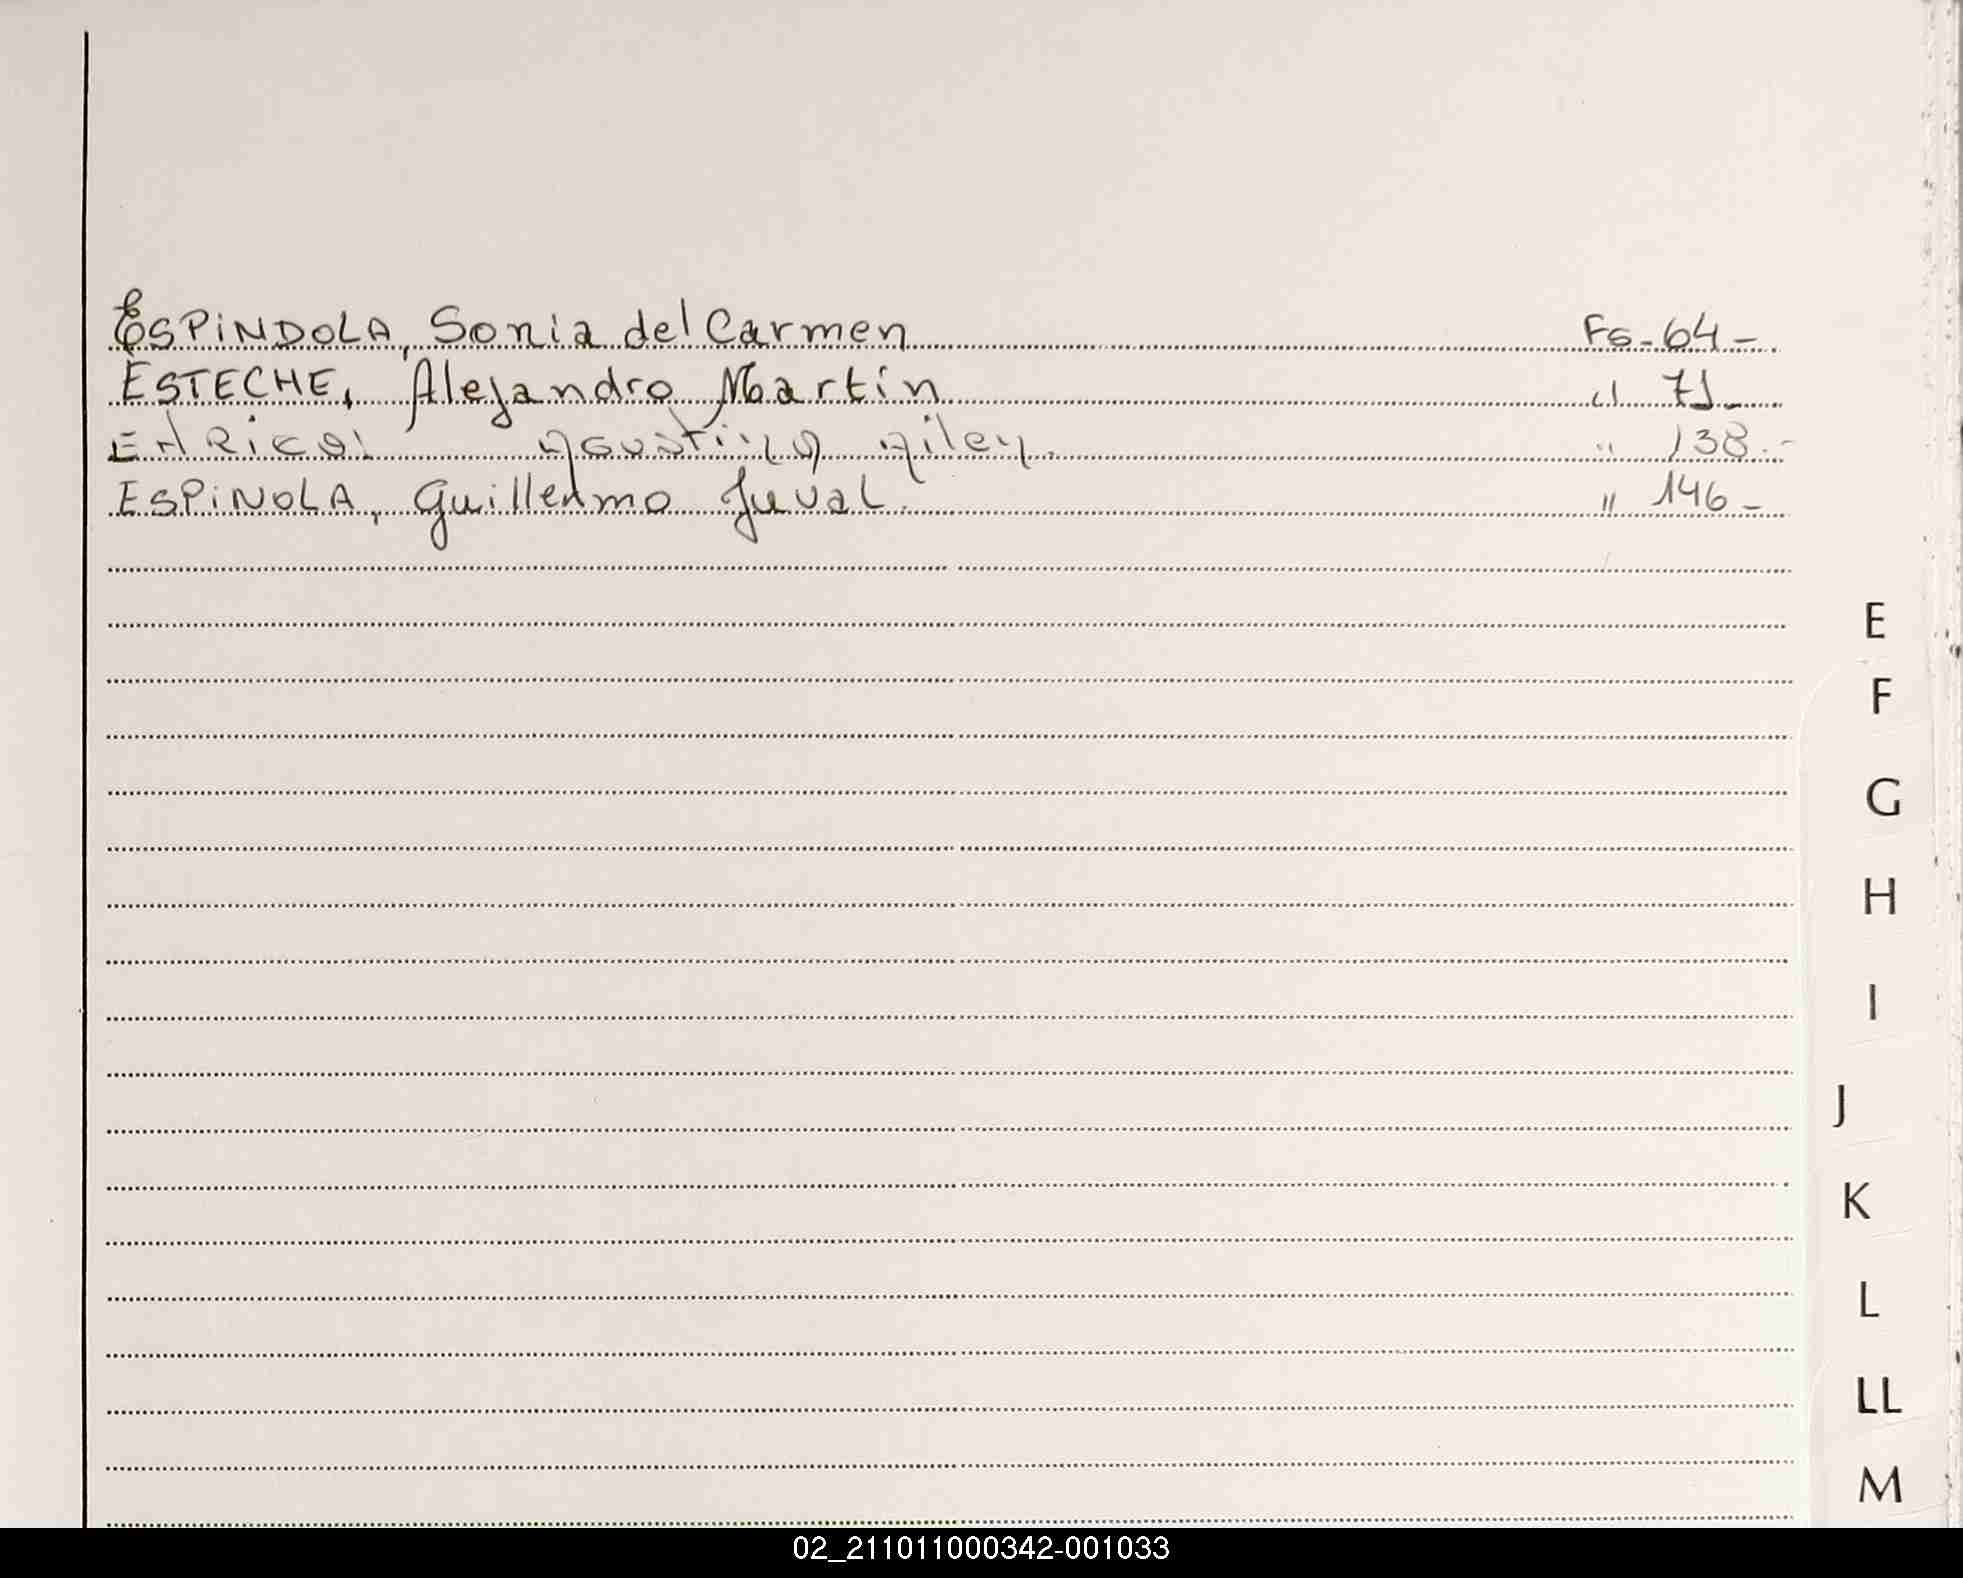 ESPINDOLA, Sonia del Carmen Fs - 64 -
ESTECHE, Alejandro Martín " 71 -
Agustina Ailen. " 138.-
ESPINOLA, Guillermo Juval. " 146 -
E
F
G
H
I
J
K
L
LL
M
02_211011000342-001033